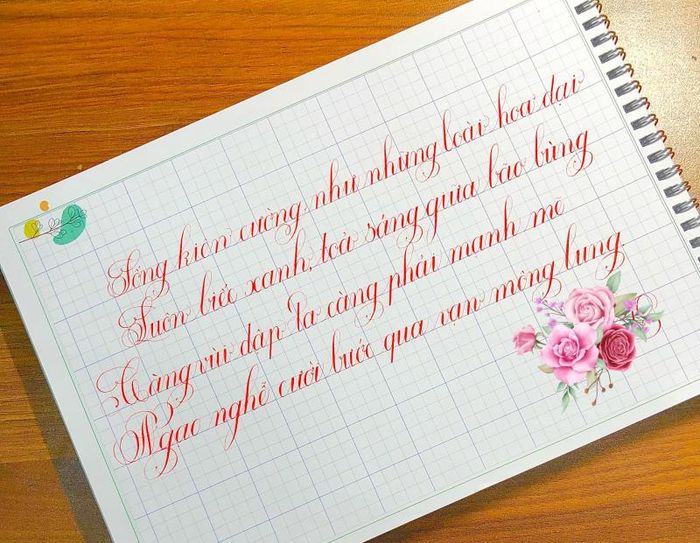 Sống kiên cường như những loài hoa dại
Luôn biếc xanh, toả sáng giữa bão bùng
Càng vùi dập Ta càng phải mạnh mẽ
Ngạo nghễ cười bước qua vạn mông lung.